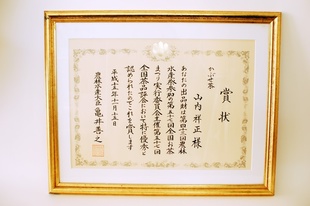 賞状
かぶせ茶
山内祥正様
あなたの出品財は第四十二回農林
水産祭参加の第五十七回全国お茶
まつり実行委員会主催第五十七回
全国茶品評会において特に優秀と
認められたのでこれを賞します
平成十五年十一月十五日
農林水産大臣 亀井善之